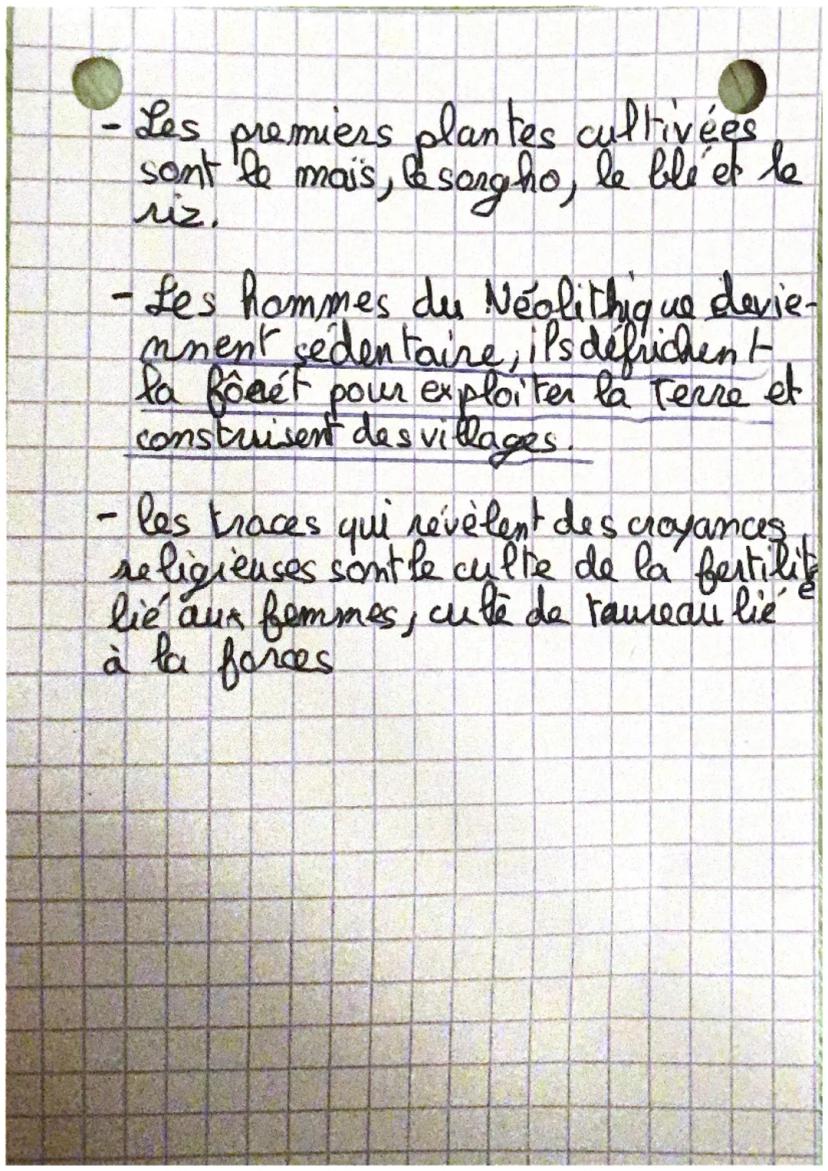 - Les premiers plantes cultivées
sont le maïs, le sorgho, le blé et le
riz.
- Les hommes du Néolithique devie-
nnent sédentaire, ils défrichent
la fôrét pour exploiter la terre et
construisent des villages.
- les traces qui révèlent des croyances
religieuses sont le culte de la fertilité
lié aux femmes, culte de taureau lié
à la forces